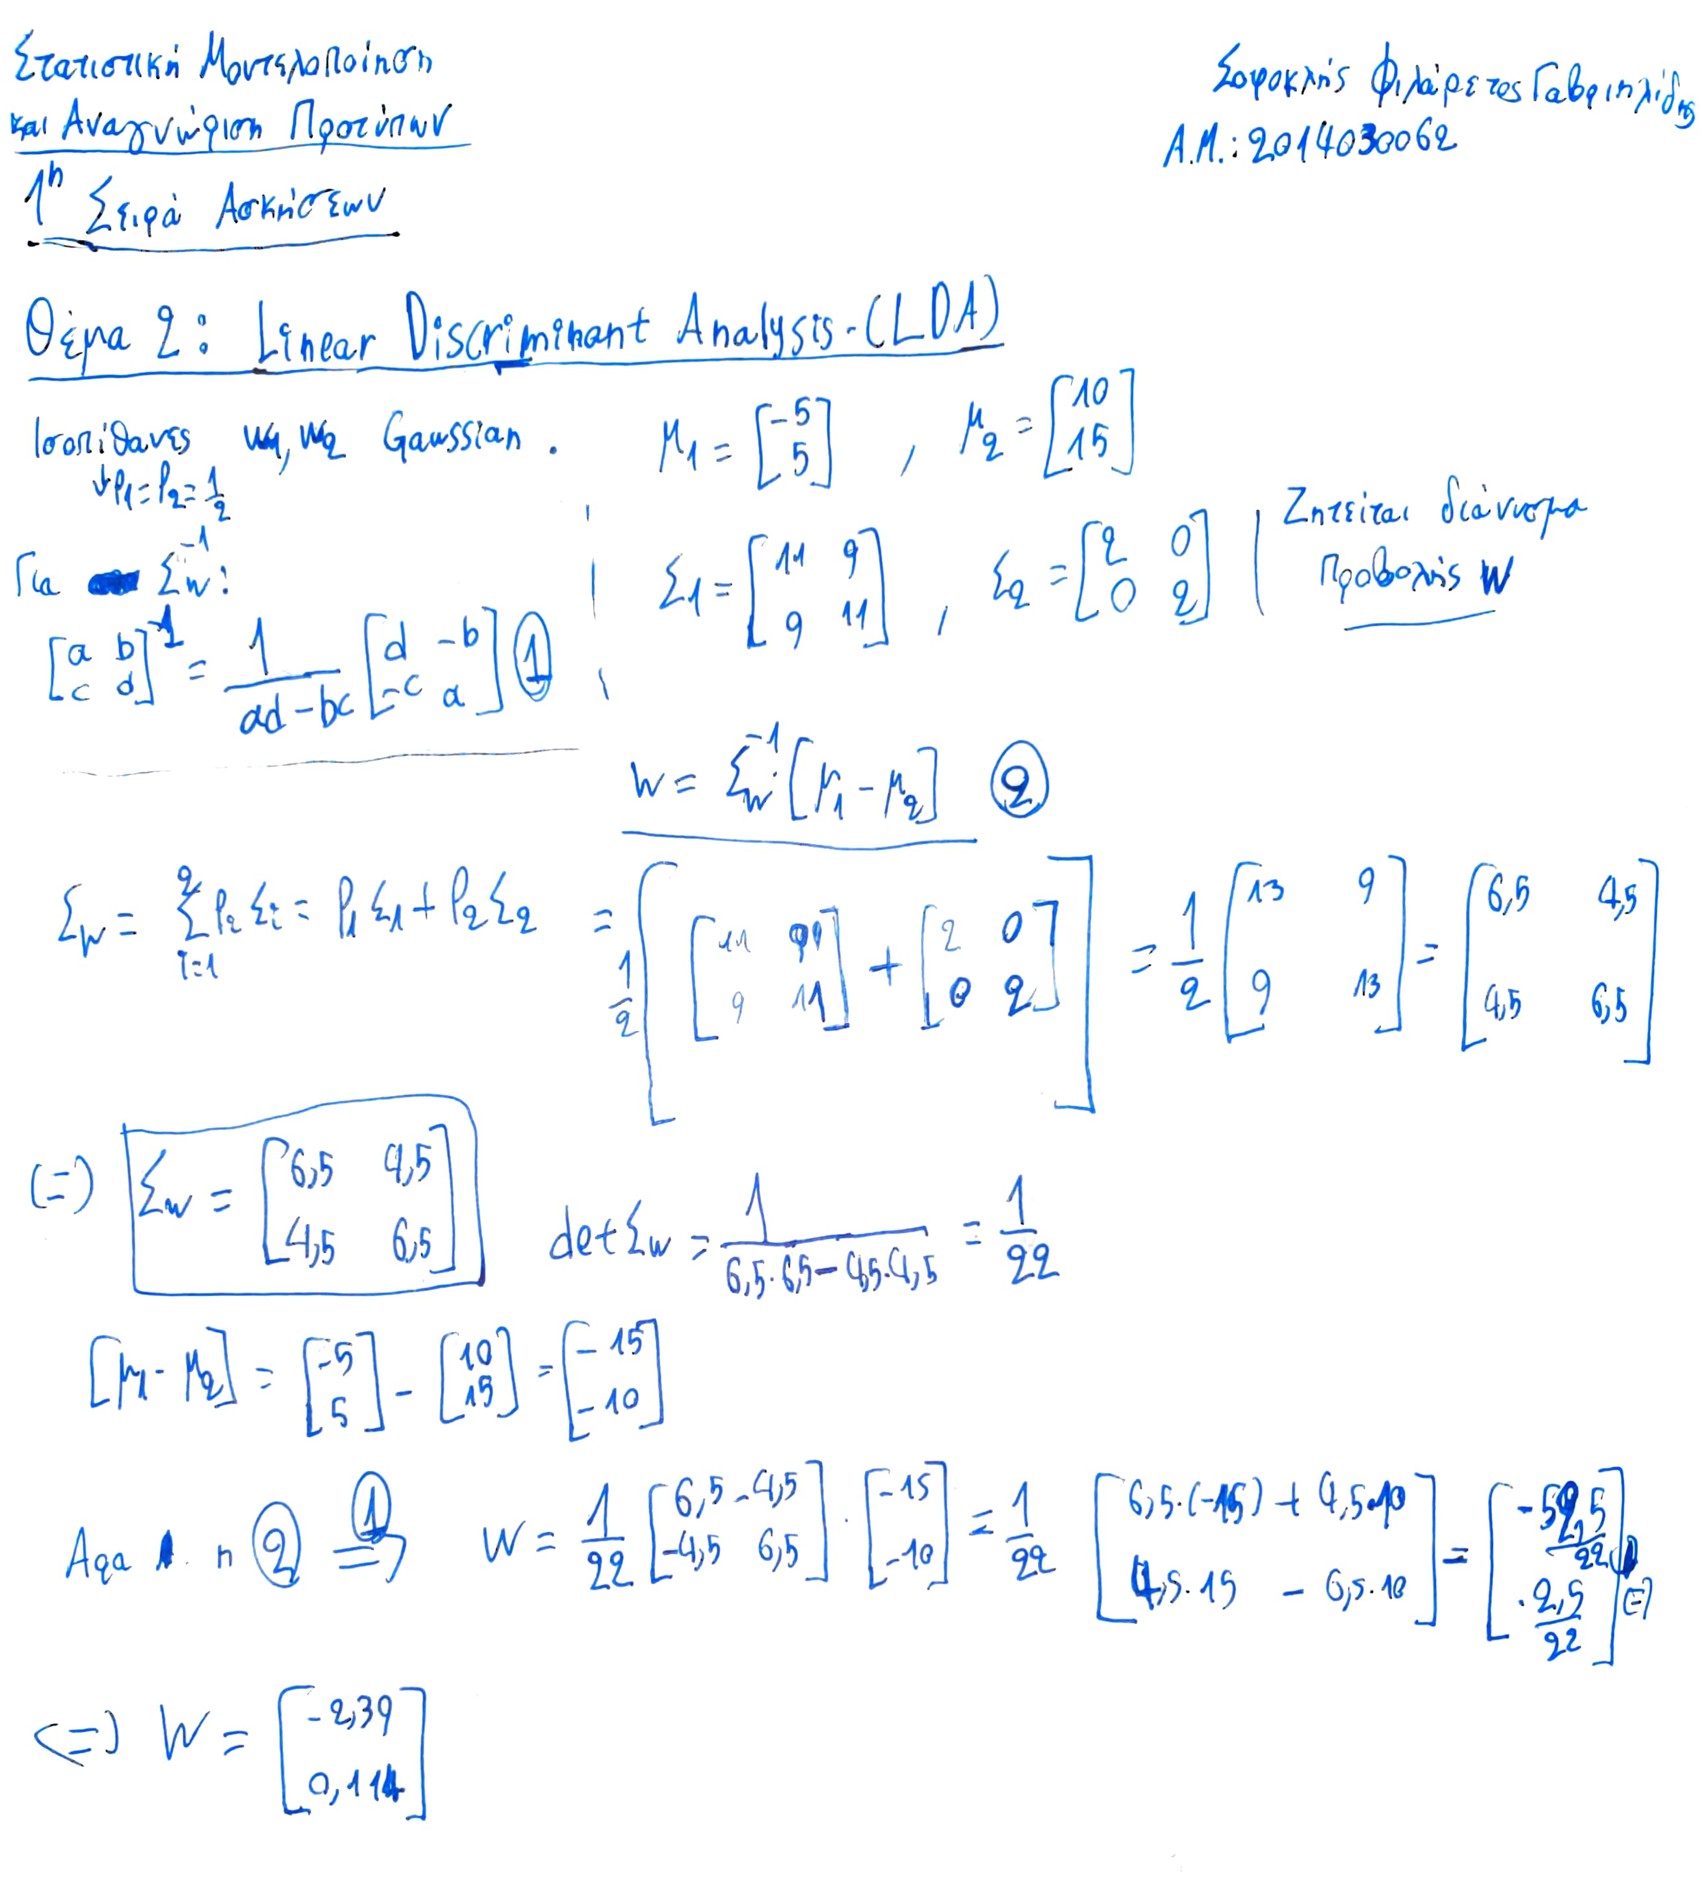 Στατιστική Μοντελοποίηση
και Αναγνώριση Προτύπων
1η Σειρά Ασκήσεων
Σοφοκλής Φιλάρετος Γαβριηλίδης
Α.Μ.: 2014030062
Θέμα 2: Linear Discriminant Analysis-(LDA)
Ισοπίθανες w1, w2 Gaussian. μ1 = [-5 5], μ2 = [10 15]
↓P1=P2=1/2
Για Σw^-1: Σ1 = [11 9 9 11], Σ2 = [2 0 0 2] | Ζητείται διάνυσμα
Προβολής w
[a b c d]^-1 = 1/(ad-bc) [d -b -c a] ①
w = Σw^-1 [μ1 - μ2] ②
Σw = Σ i=1 2 Pi Σi = P1Σ1 + P2Σ2 = 1/2 [[11 9 9 11] + [2 0 0 2]] = 1/2 [13 9 9 13] = [6,5 4,5 4,5 6,5]
(=) Σw = [6,5 4,5 4,5 6,5] det Σw = 1/(6,5·6,5-4,5·4,5) = 1/22
[μ1 - μ2] = [-5 5] - [10 15] = [-15 -10]
Άρα η ② ①=> W = 1/22 [6,5 -4,5 -4,5 6,5] · [-15 -10] = 1/22 [6,5·(-15) + 4,5·10 4,5·15 - 6,5·10] = [-52,5/22 2,5/22] (=)
<=) W = [-2,39 0,114]